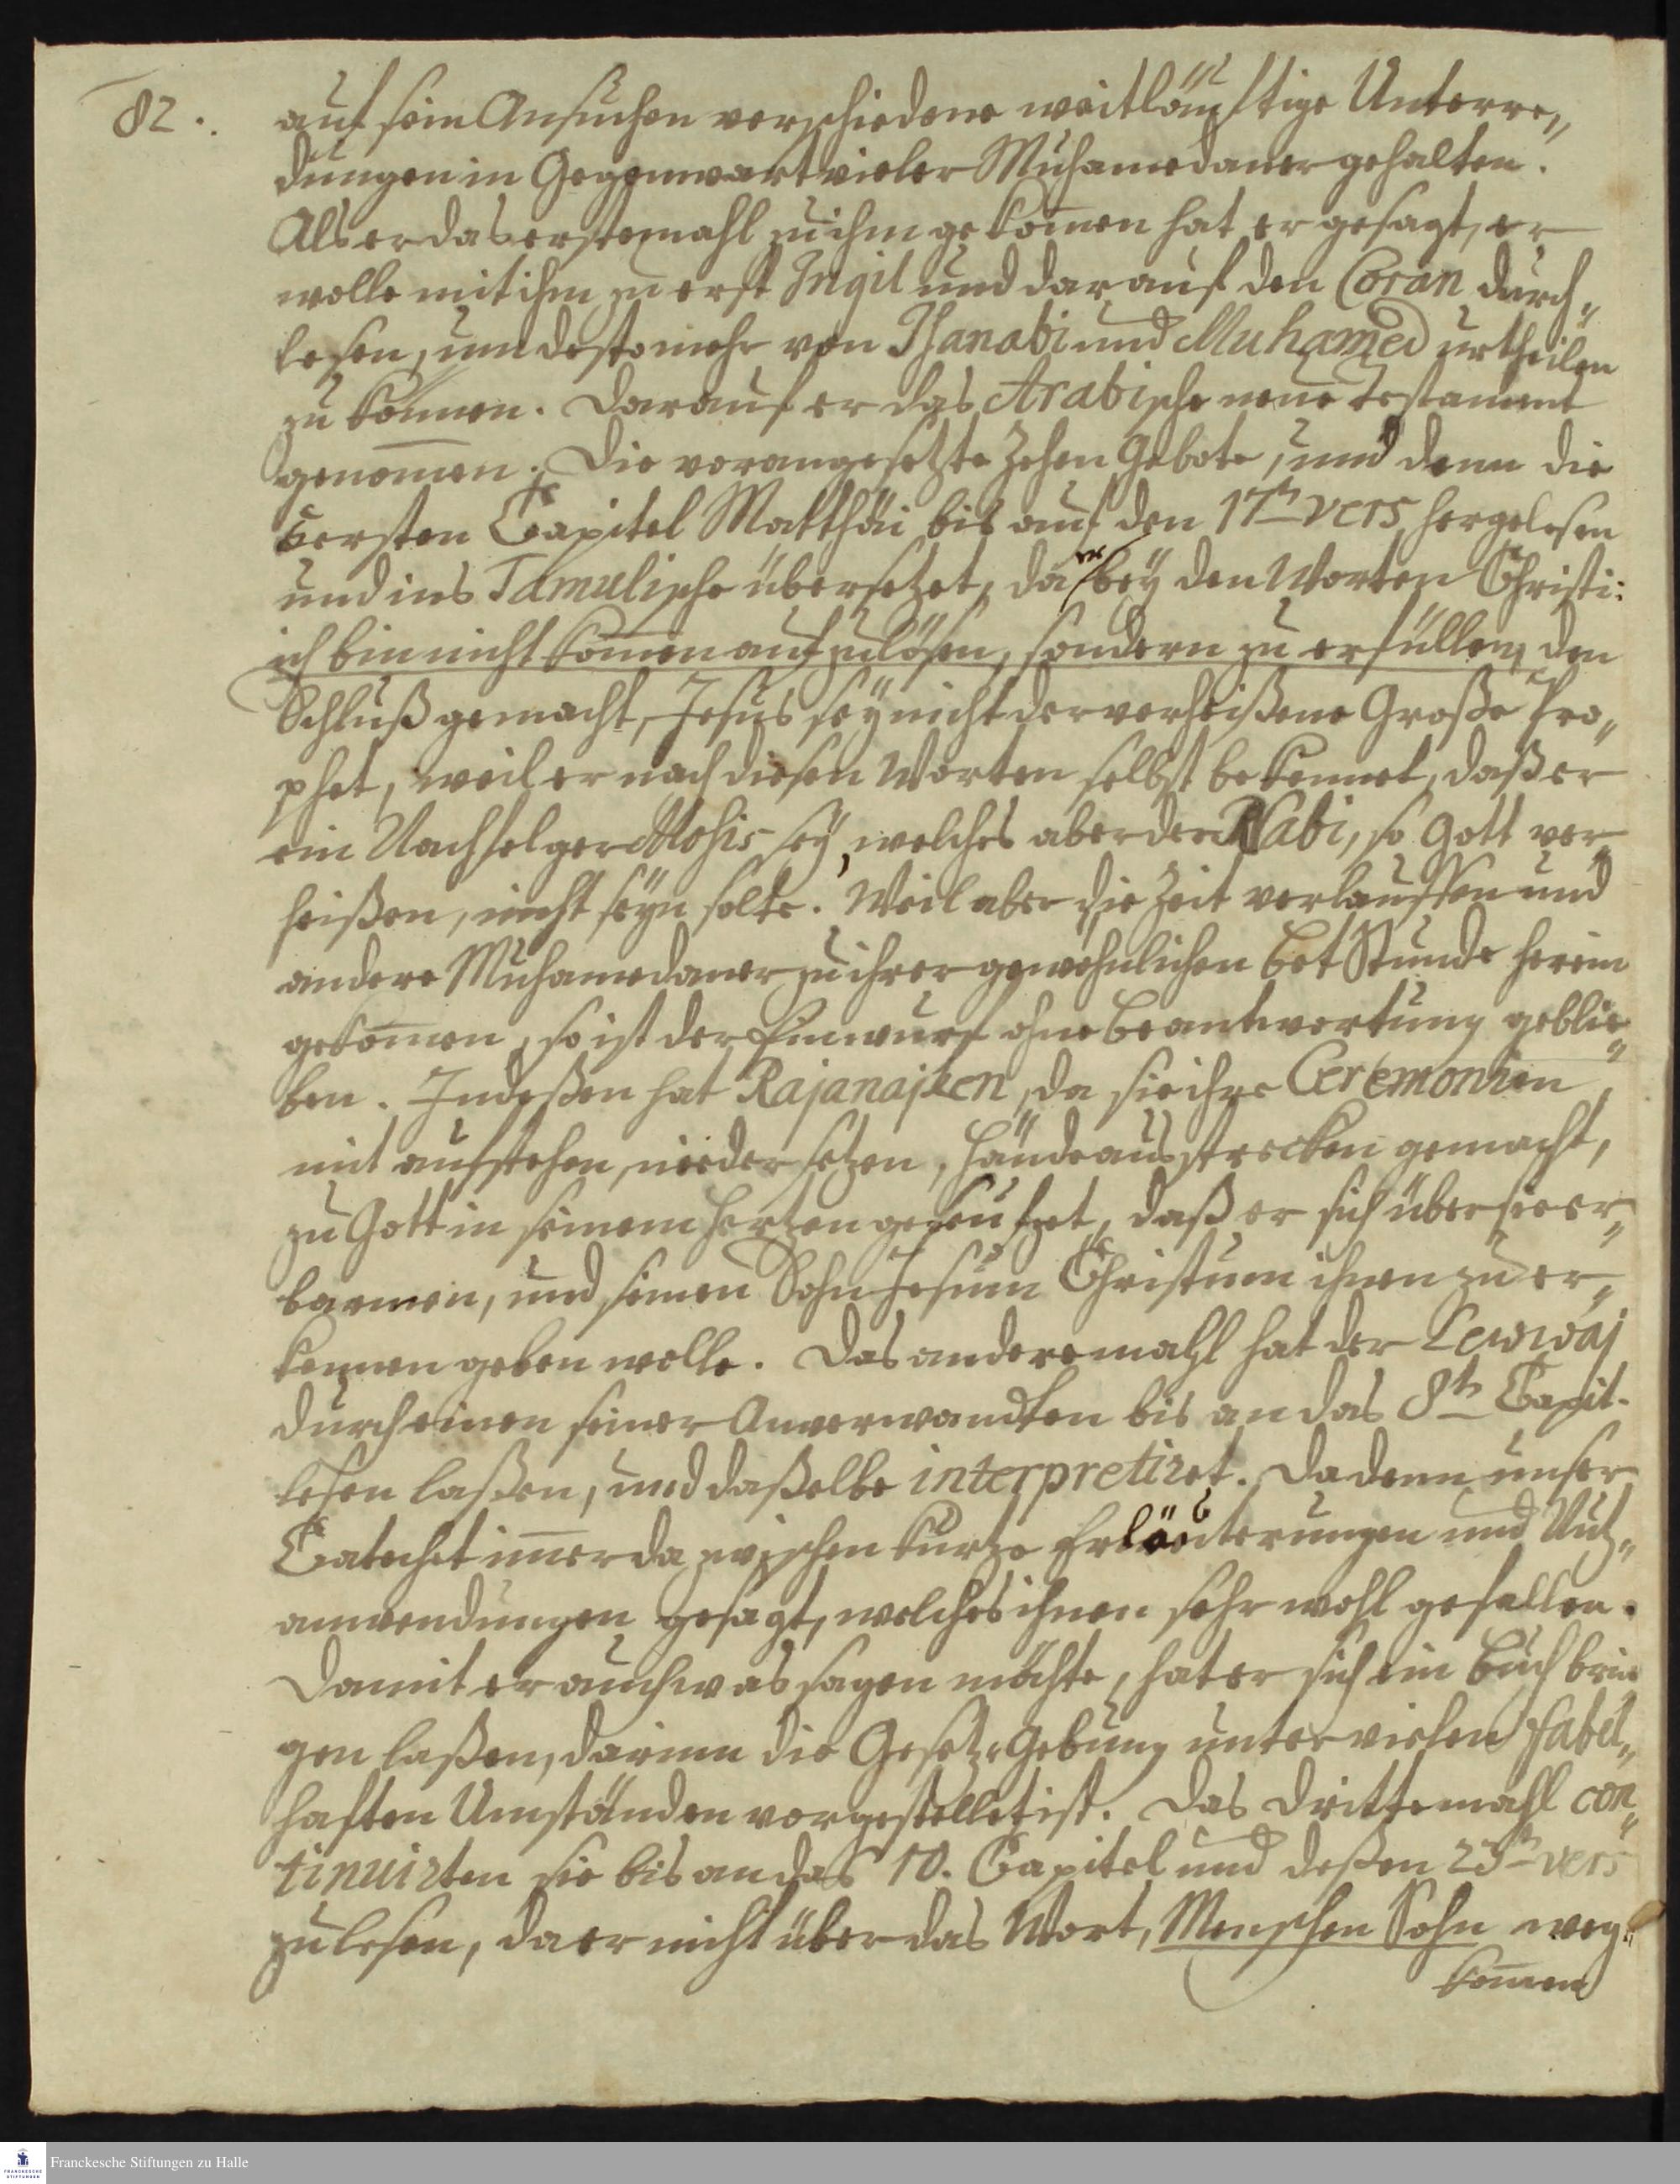 82.
auf sein Ansuchen verschiedene weitläuftige Unterre„
dungen in Gegenwart vieler Muhamedaner gehalten.
Als er das erstemahl zu ihm gekom̅en hat er gesagt, er
wolle mit ihm zu erst Ingil und darauf den Coran durch„
lesen, um destomehr von Isanabi und Muhamed urtheilen
zu können. Darauf er das Arabische neue Testament
genom̅en. Die vorangesetzte Zehen Gebote, und denn die
5 ersten Capitel Matthäi bis auf den 17tn vers hergelesen
und ins Tamulische übersetzet, da er bey den Worten Christi:
ich bin nicht kom̅en aufzulösen, sondern zu erfüllen, den
Schluß gemacht, Jesus sey nicht der verheißene Große Pro„
phet, weil er nach diesen Worten selbst bekennet, daß er
ein Nachfolger Mosis sey, welches aber der Nabi, so Gott ver„
heißen, nicht seyn solte. Weil aber die Zeit verlauffen und
andere Muhamedaner zu ihrer gewöhnlichen Bet Stunde herein
gekom̅en, so ist der Einwurf ohne Beantwortung geblie„
ben. Indeßen hat Rajanajken, da sie ihre Ceremonien
mit aufstehen, niedersetzen, Händeausstrecken gemacht,
zu Gott in seinem Hertzen geseufzet, daß er sich über sie er„
barmen, und seinen Sohn Jesum Christum ihnen zu er„
kennen geben wolle. Das anderemahl hat der Lewwaj
durch einen seiner Anverwandten bis an das 8te Capit.
lesen laßen, und daßelbe interpretiret. Da denn unser
Catechet im̅er dazwischen kurtze Erläuterungen und Nutz„
anwendungen gesagt, welches ihnen sehr wohl gefallen.
Damit er auch was sagen möchte, hat er sich ein Buch brin
gen laßen, darinn die Gesetz-Gebung unter vielen Fabel„
haften Umständen vorgestellet ist. Das drittemahl con„
tinuirten sie bis an das 10. Capitel und deßen 23tn vers
zulesen, da er nicht über das Wort, Menschen Sohn weg„
kom̅en
Franckesche Stiftungen zu Halle
FRANCKESCHE
STIFTUNGEN